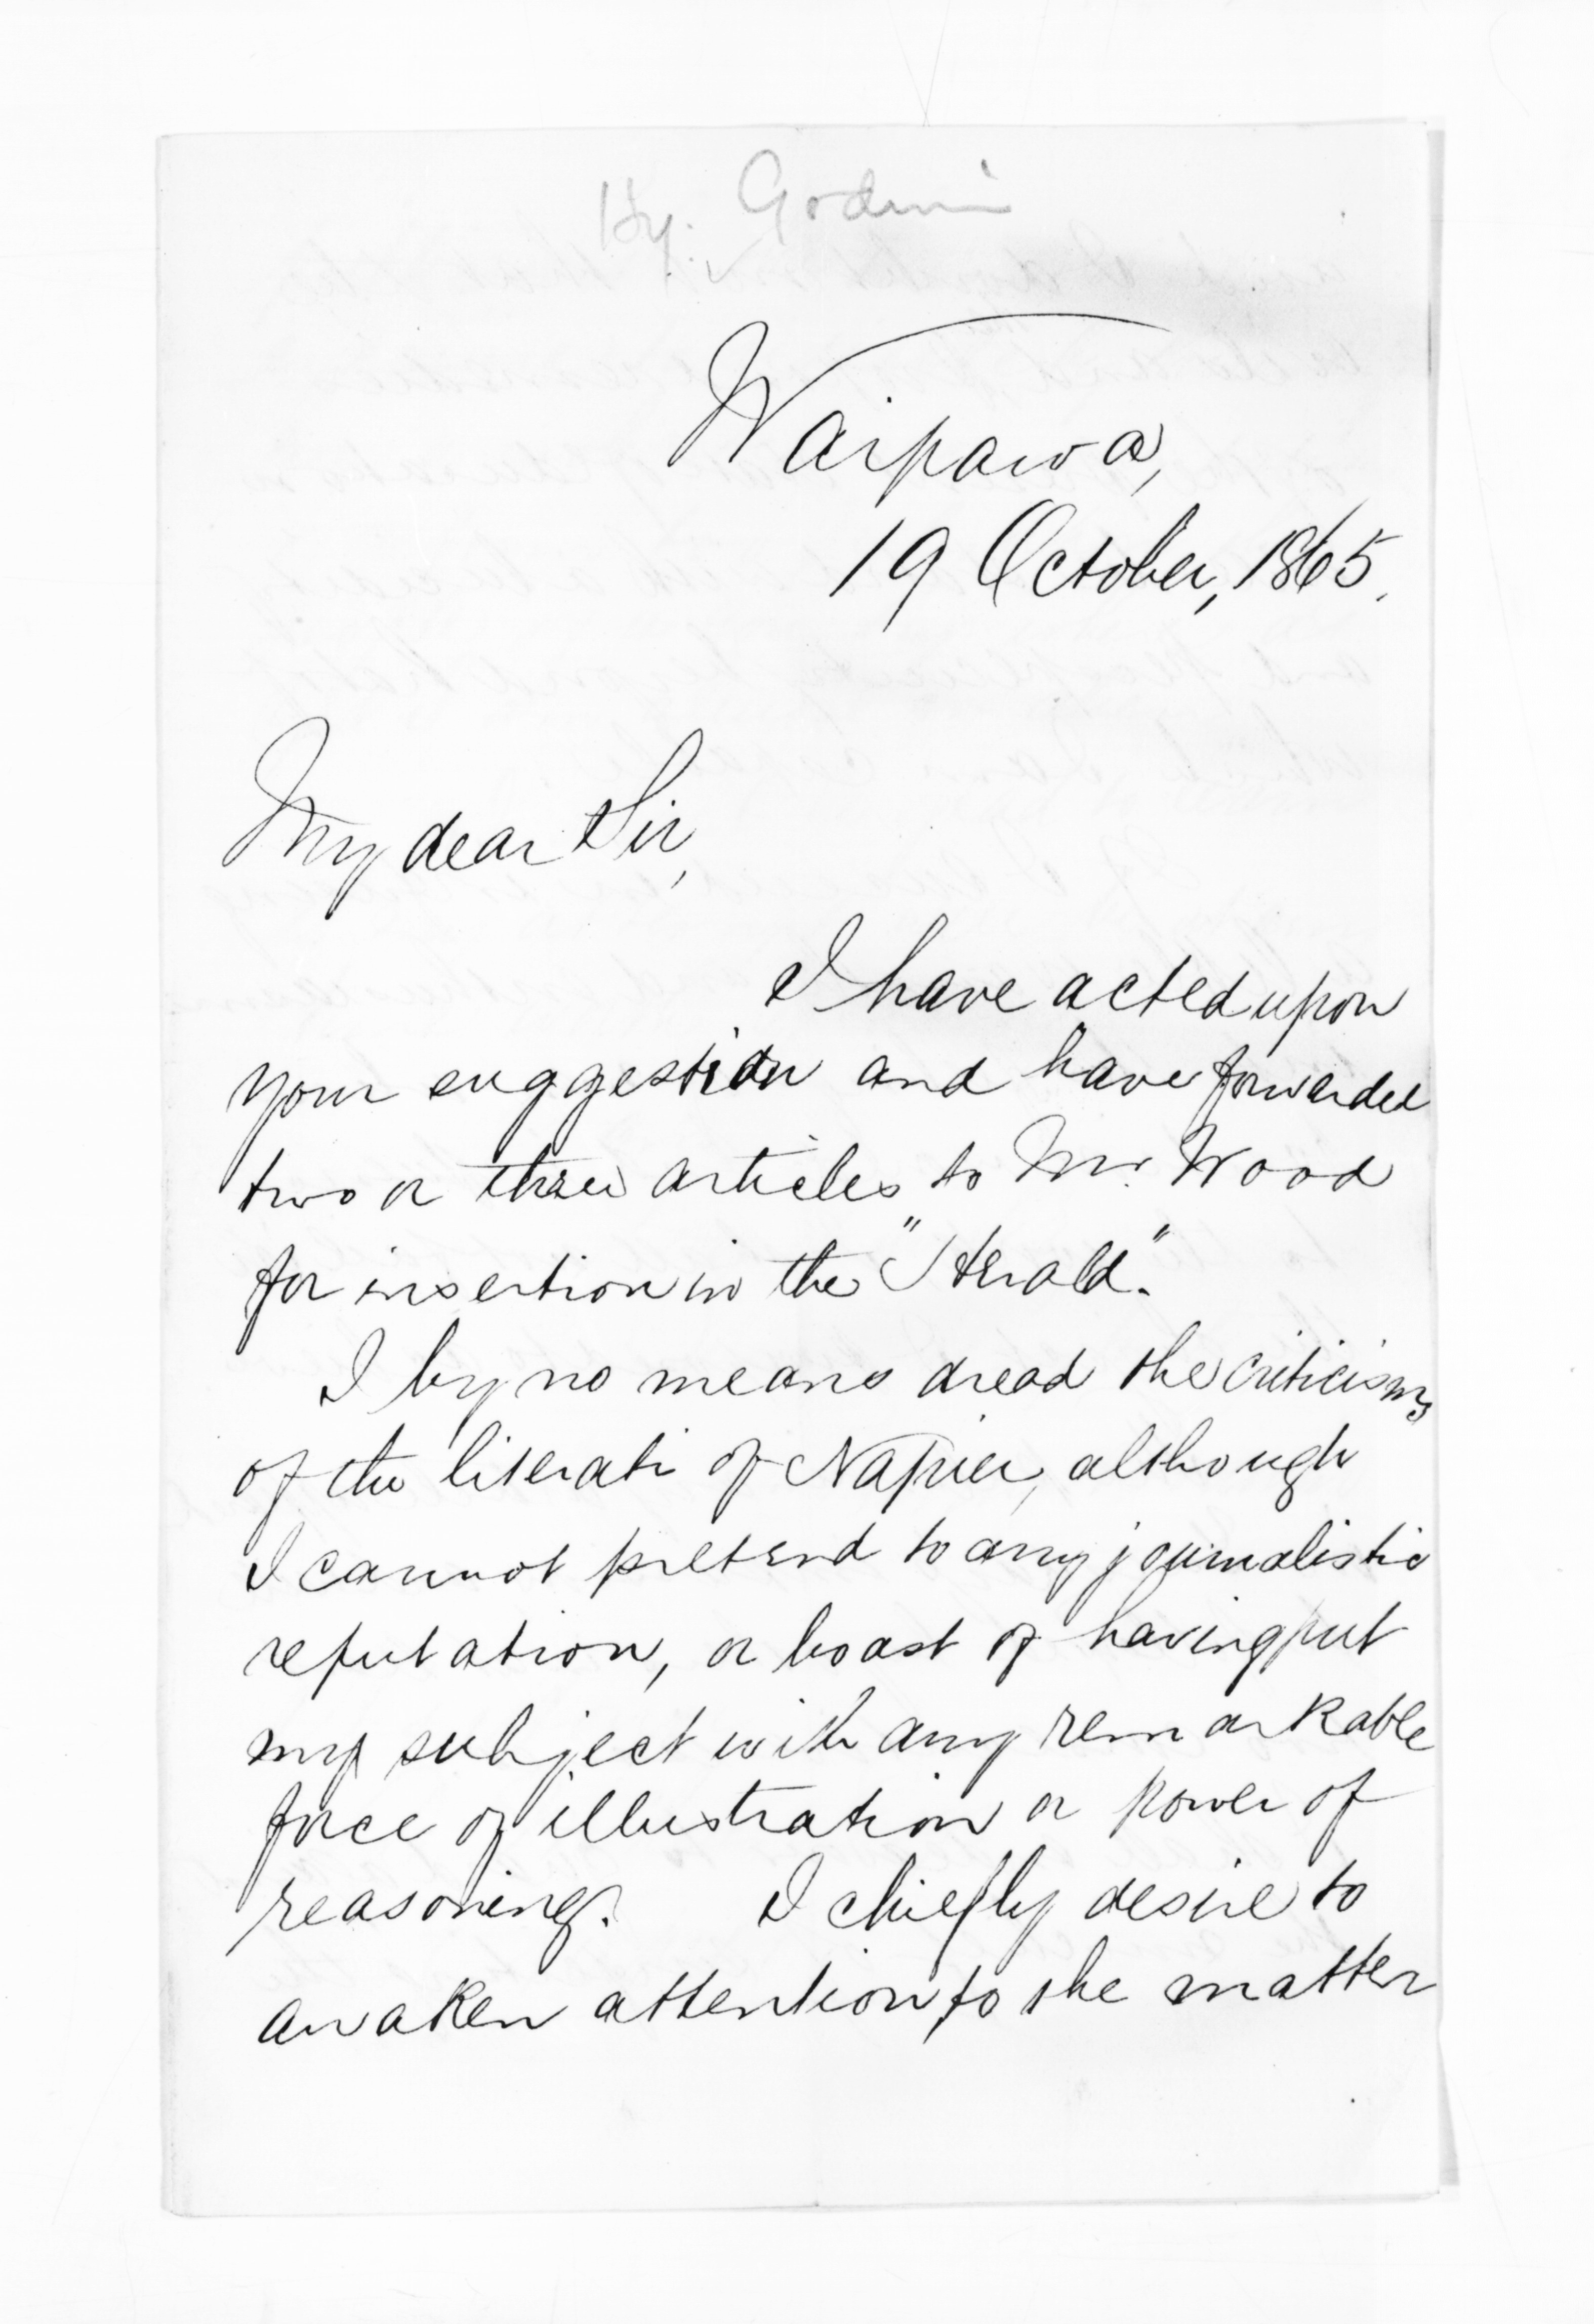 Hy.
Waipawa,
19 October, 1865.
My dear Sir,
I have acted upon
your suggestion and have forwarded
two or three articles to Mr. Wood
for insertion in the "Herald."
I by no means dread the criticisms
of the literati of Napier, although
I cannot pretend to any journalistic
reputation, or boast of having put
my subject with any remarkable
force of illustration or power of
reasoning. I chiefly desire to
awaken attention to the matter